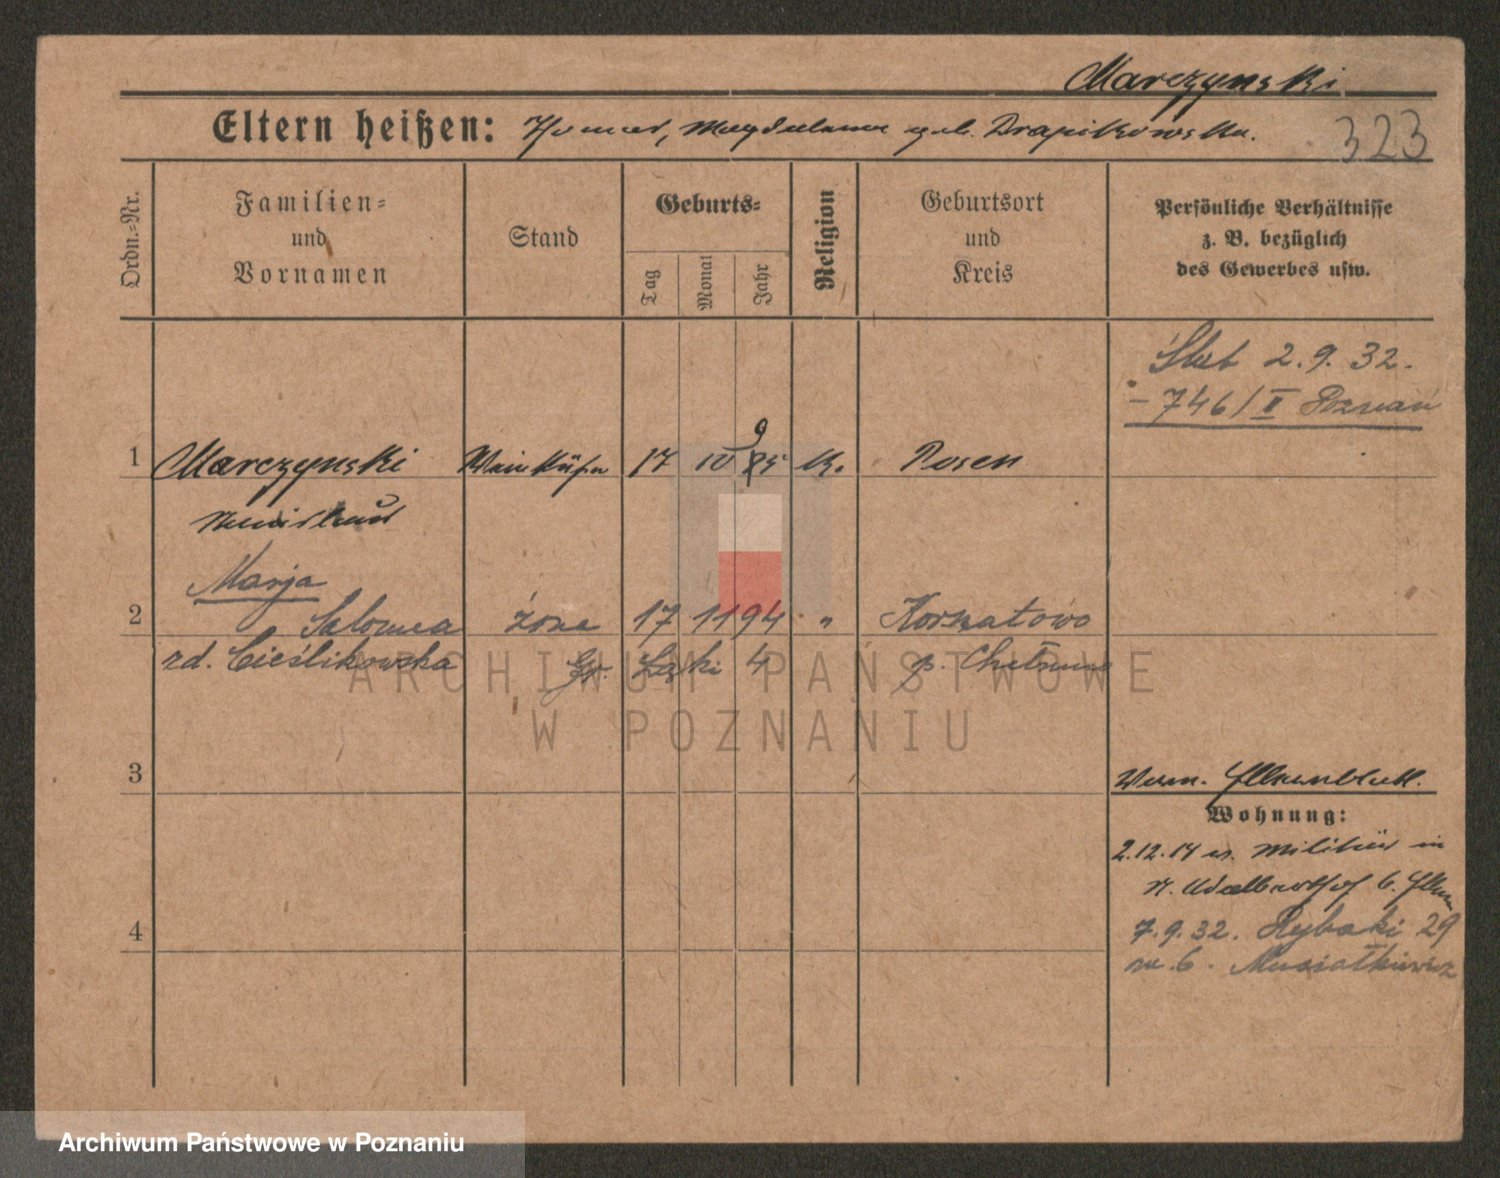 Marczynski
Eltern heißen: Thomas, Magdalena geb. Drapikowska.
323
Ordn.-Nr.
Familien- und Vornamen
Stand
Geburts-
Tag
Monat
Jahr
Religion
Geburtsort und Kreis
Persönliche Verhältnisse z. B. bezüglich des Gewerbes usw.
Ślub 2.9.32.
– 746/II Poznań
9
1 Marczynski Weinküfer 17 10 85 K. Posen
Marja
2 Salomea żona 17 11 94 " Kornatowo
zd. Cieślikowska Gr. Łąki 4 p. Chełmno
ARCHIWUM PAŃSTWOWE
W POZNANIU
3
Wohnung:
2.12.14 Militär in
4
7.9.32. Rybaki 29
m. 6. Musiałkiewicz
Archiwum Państwowe w Poznaniu